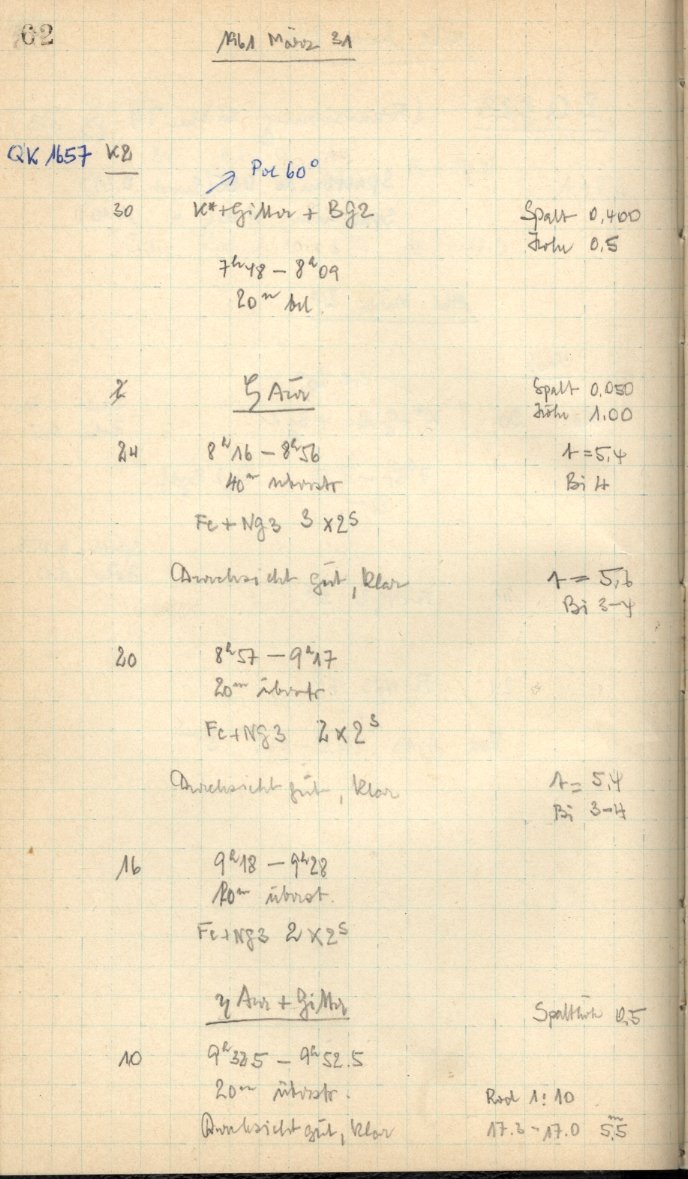 62
1961 März 31
QK 1657 K2
Pol 60°
30 K*+Gitter + BG2 Spalt 0,400
Höhe 0,5
7h48 – 8h09
20m bel.
ζ Aur Spalt 0,050
Höhe 1,00
24 8h16 – 8h56 t=5,4
40m überstr Bi 4
Fe+Ng3 3 x2s
Durchsicht gut, klar t= 5,6
Bi 3-4
20 8h57 – 9h17
20m überstr.
Fe+Ng3 2x2s
Durchsicht gut, klar t= 5,4
Bi 3-4
16 9h18 – 9h28
10m überst.
Fe+Ng3 2x2s
η Aur + Gitter Spalthöhe 0,5
10 – 9h52.5
20m überstr. Rod 1:10
Durchsicht gut, klar 17.3 – 17.0 5m,5